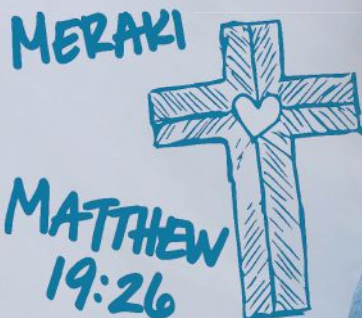 MERAKI
MATTHEW
19:26